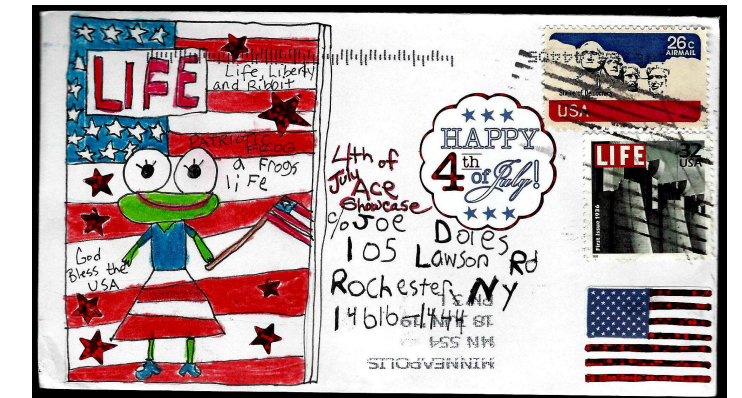 LIFE
Life, Liberty
and Ribbit
PATRIOTIC
FROG
a Frogs
life
God
Bless the
USA
4th of
July
Ace
Showcase
c/o Joe Doles
105 Lawson Rd
Rochester NY
14616-1444
HAPPY
4th
of July!
26c
AIRMAIL
Shrine of Democracy
USA
LIFE
32
USA
First Issue 1936
MINNEAPOLIS
MN 554
18 JUN 19